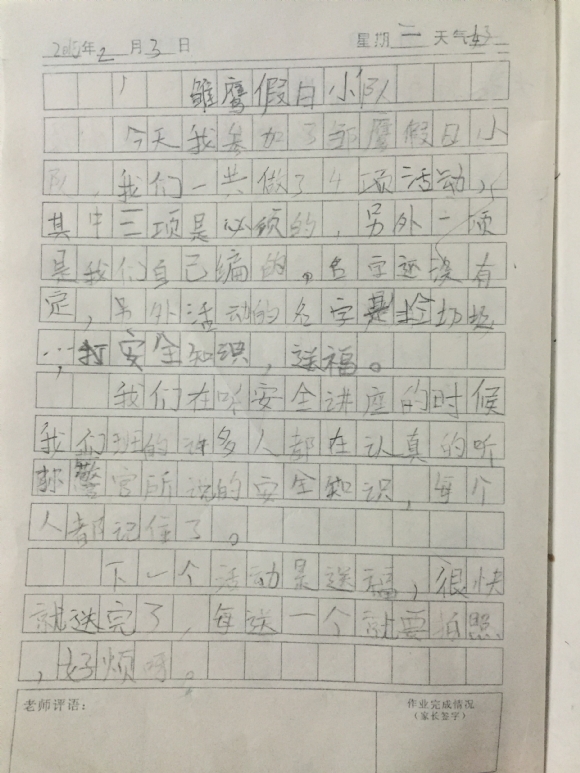 2015年2月3日 星期二 天气好
雏鹰假日小队
今天我参加了雏鹰假日小
队，我们一共做了4项活动，
其中三项是必须的，另外一项
是我们自己编的。名字还没有
定，另外活动的名字是捡垃圾
，打安全知识，送福。
我们在听安全讲座的时候
我们班的许多人都在认真的听
警官所说的安全知识，每个
人都记住了。
下一个活动是送福，很快
就送完了，每送一个就要拍照
，好烦呀。
老师评语：
作业完成情况
（家长签字）